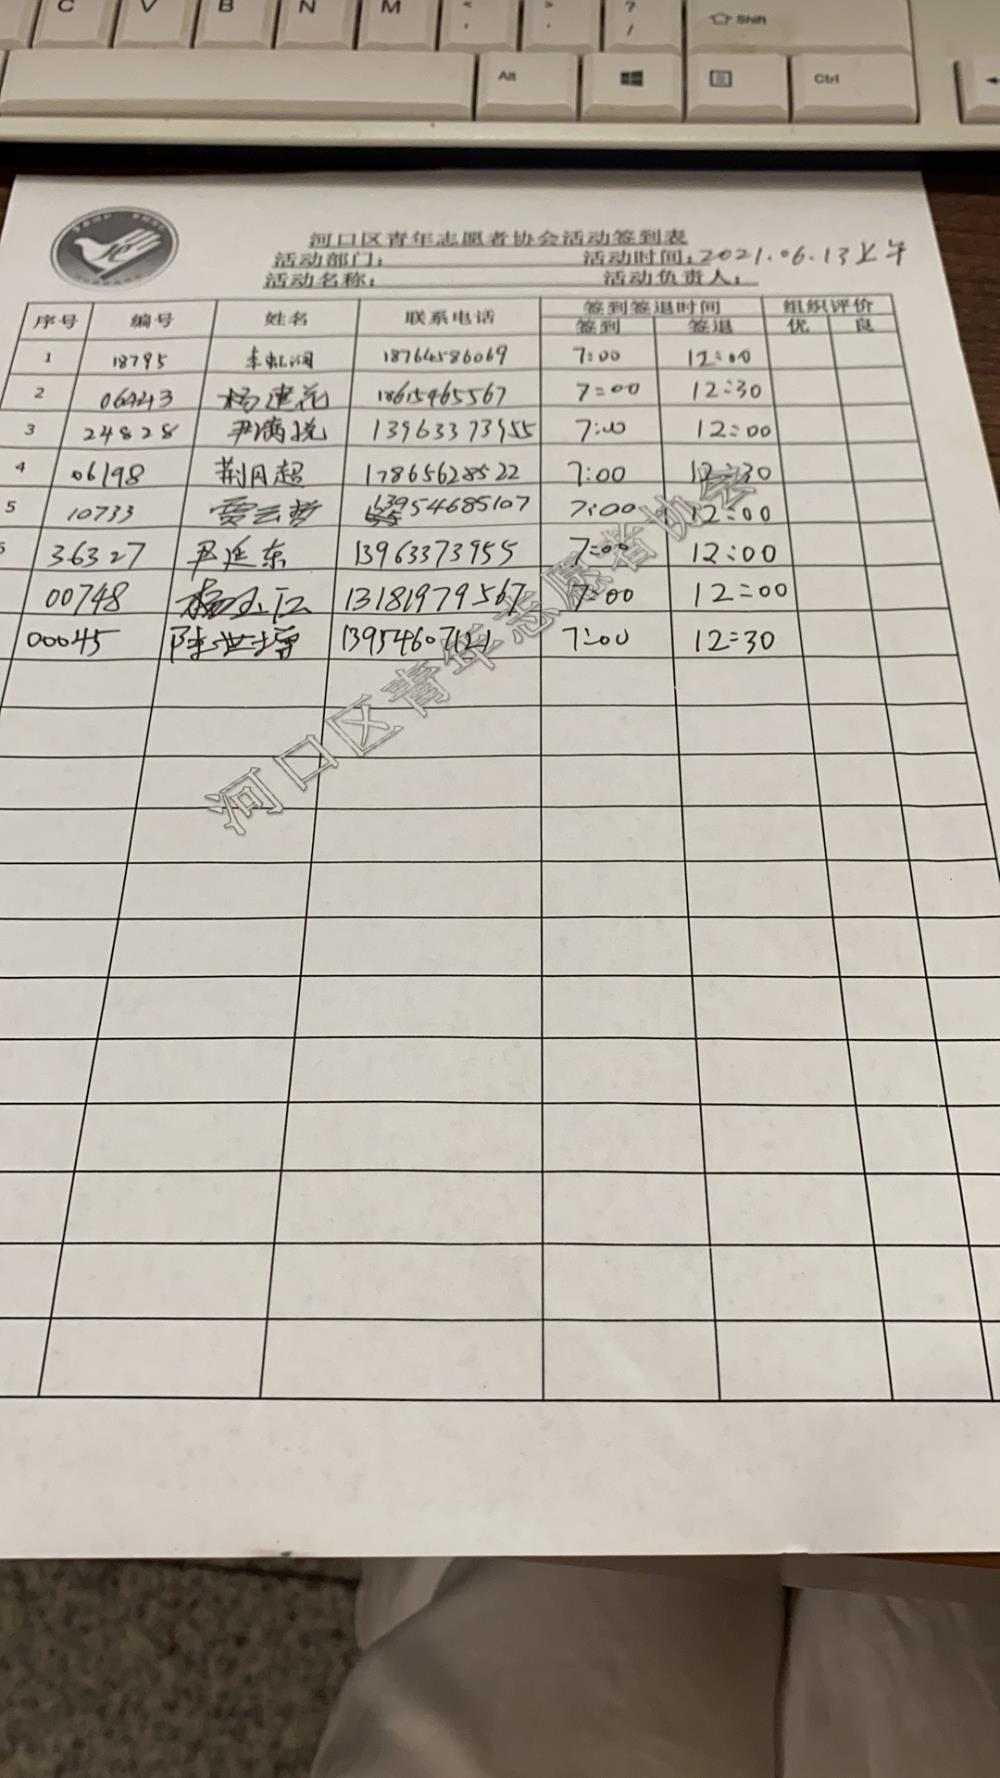 C V B N M < , > . ? / Shift
Alt Ctrl
河口区青年志愿者协会活动签到表
活动部门: 活动时间: 2021.06.13上午
活动名称: 活动负责人:
序号 编号 姓名 联系电话 签到签退时间 组织评价
签到 签退 优 良
1 18795 李虹润 18764586069 7:00 12:00
2 06443 杨建花 18615465567 7:00 12:30
3 24828 尹腾悦 13963373955 7:00 12:00
4 06198 荆月超 17865628522 7:00 12:30
5 10733 贾云梦 13954685107 7:00 12:00
6 36327 尹延东 13963373955 7:00 12:00
00748 杨玉江 13181979567 7:00 12:00
00045 陈世增 13954607121 7:00 12:30
河口区青年志愿者协会